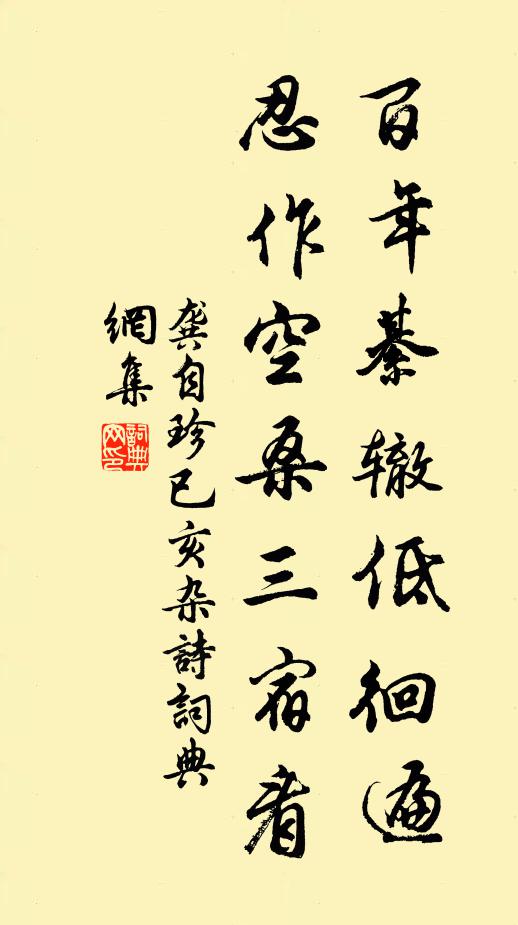 百年綦辙低徊遍
忍作空桑三宿看
龚自珍已亥杂詩詞典
網集
詞典網印